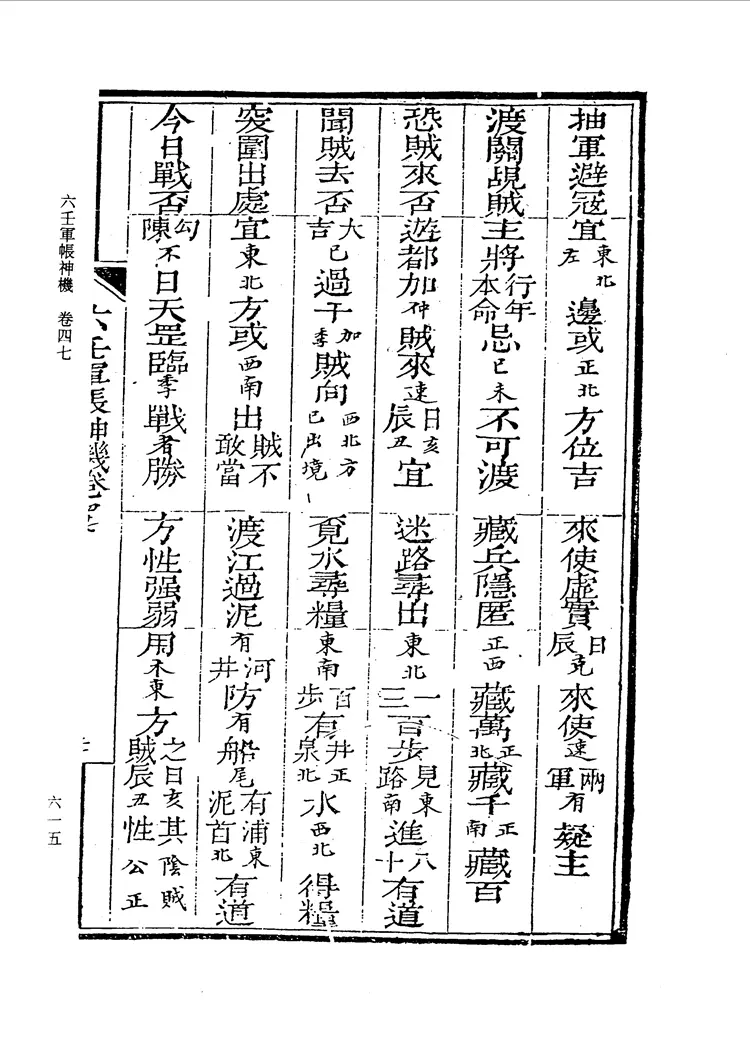 抽軍避冦宜東北左邊或正北方位吉　來使虛實日辰克來使速兩軍有疑主
渡關覘賊主將行年本命忌巳未不可渡　藏兵隱匿正西藏萬正北藏千正南藏百
恐賊來否遊都加仲賊來速日亥辰丑宜　迷路尋出東北一三百步見東路南進八十有道
聞賊去否大吉已過于加季賊向西北方已出境　覓水尋糧東南百步有井正泉北水西北得糧
突圍出處宜東北方或西南出賊不敢當　渡江過泥有河井防有船尾有浦東泥首北有道
今日戰否勾陳不日天罡臨季戰者勝　方性强弱用木東方之日亥賊辰丑其陰賊性公正
六壬軍帳神機卷四七
六壬軍帳神機　卷四七
六一五